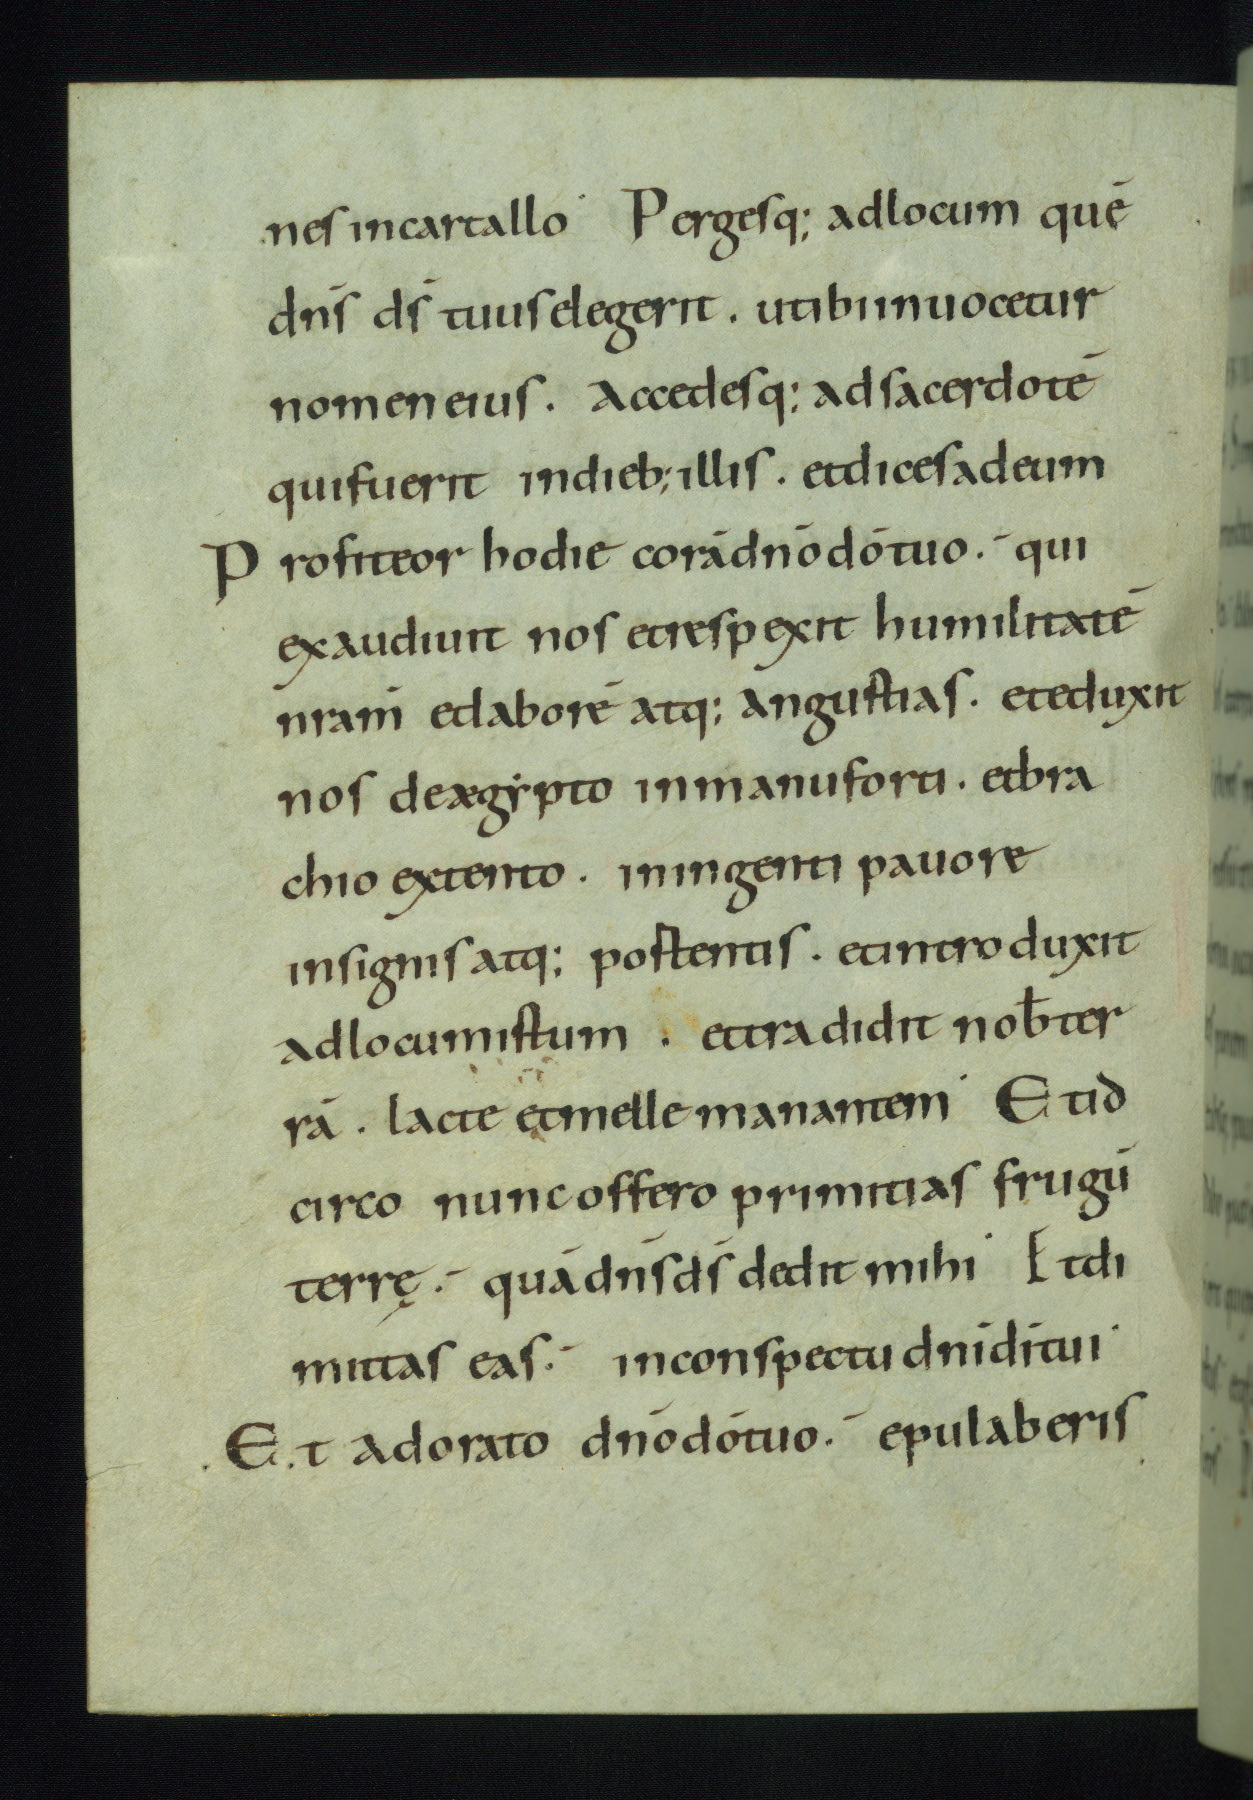 nes incartallo· Pergesq; adlocum quē
dn̄s ds̄ tuus elegerit. utibi inuocetur
nomen eius. Accedesq; adsacerdotē
quifuerit indieb; illis. etdices adeum
Profiteor hodie corādn̄odōtuo. qui
exaudiuit nos etrespexit humilitatē
nr̄am etlaborē atq; angustias. eteduxit
nos deægẏpto inmanuforti. etbra
chio extento. iningenti pauore
insignis atq; postentis. etintroduxit
adlocumistum. ettradidit nob̄ ter
rā. lacte etmelle manantem· Etid
circo nunc offero primitias frugū
terrę. quādn̄sds̄ dedit mihi· Etdi
mittas eas. inconspectu dn̄idītui·
Et adorato dn̄odōtuo. epulaberis